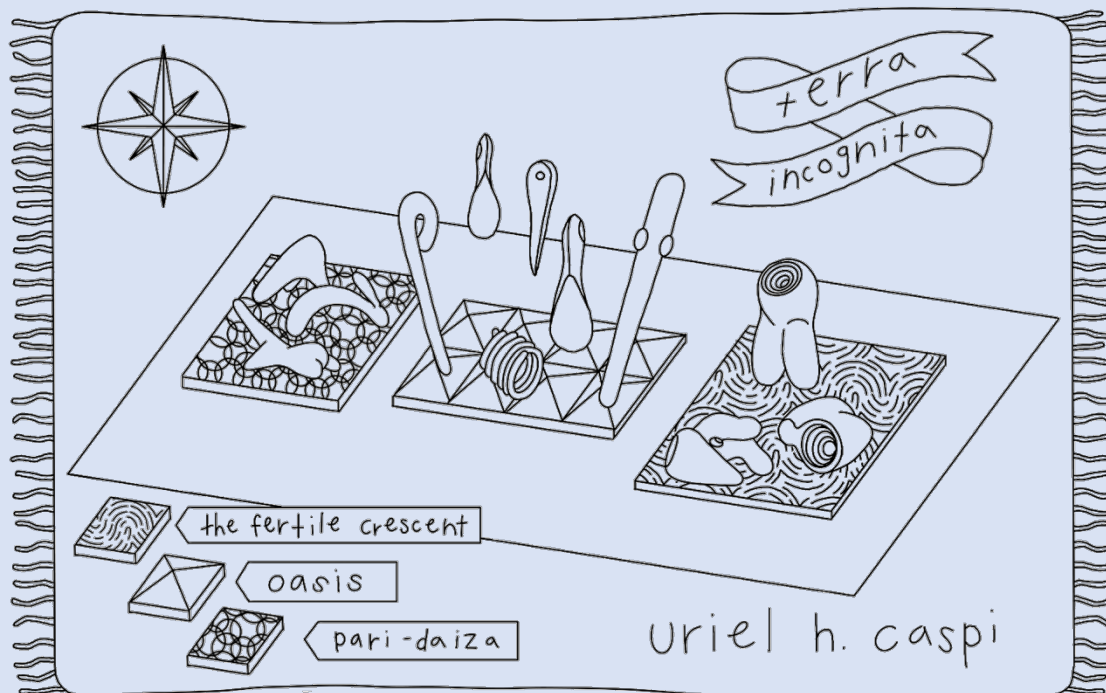 terra
incognita
the fertile crescent
oasis
pari-daiza
uriel h. caspi